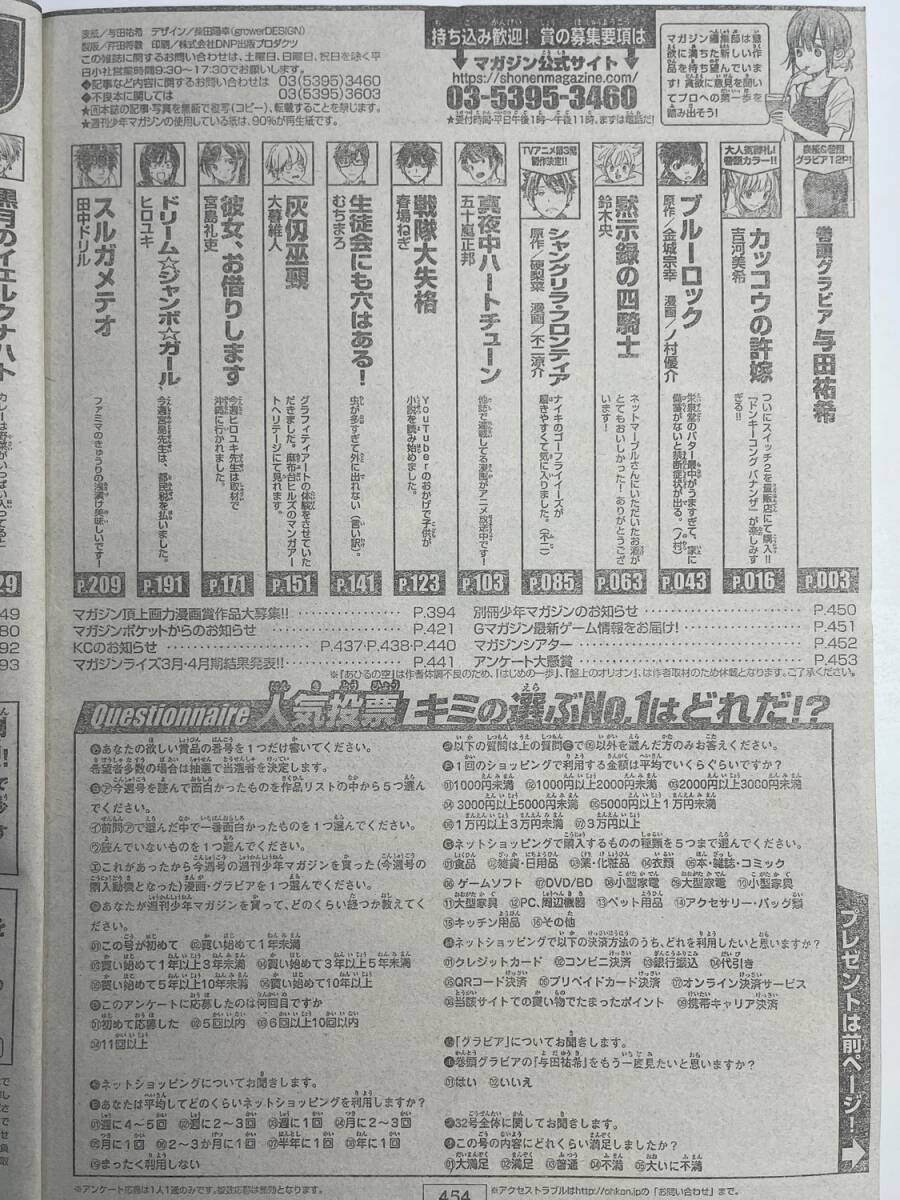 表紙/与田祐希 デザイン/柴田陽幸(growerDESIGN)
印刷/株式会社DNP出版プロダクツ
この雑誌に関するお問い合わせは、土曜日、日曜日、祝日を除く平
日小社営業時間9:30〜17:30でお願いします。
◆記事など内容に関するお問い合わせは 03(5395)3460
◆不良本に関しては 03(5395)3603
★因本誌の記事・写真を無断で複写(コピー)、転載することを禁じます。
★週刊少年マガジンの使用している紙は、90%が再生紙です。
持ち込み歓迎! 賞の募集要項は
マガジン公式サイト
https://shonenmagazine.com/
03-5395-3460
★受付時間・平日午後1時〜午後11時、まずは電話だ!
マガジン編集部は意
欲に満ちた新しい作
品を待ち望んでいま
す! 貪欲に意見を聞い
てプロへの第一歩を
踏み出そう!
表紙&巻頭
グラビア12P!
巻頭グラビア 与田祐希
P.003
大人気御礼!
巻頭カラー!!
カッコウの許嫁
吉河美希
ついにスイッチ2を量販店にて購入!!
『ドンキーコング バナンザ』が楽しみす
ぎる!!
P.016
ブルーロック
原作/金城宗幸 漫画/ノ村優介
栄泉堂のバター最中がうますぎて、家に
備蓄がないと禁断症状が出る。(ノ村)
P.043
黙示録の四騎士
鈴木央
ネットマーブルさんにいただいたお酒が
とてもおいしかった! ありがとうござ
います!
P.063
TVアニメ第3期
制作決定!!
シャングリラ・フロンティア
原作/硬梨菜 漫画/不二涼介
ナイキのゴーフライイーズが
履きやすくて気に入りました。(不二)
P.085
真夜中ハートチューン
五十嵐正邦
他誌で連載してる漫画がアニメ放送中です!
P.103
戦隊大失格
春場ねぎ
YouTuberのおかげで子供が
小説を読み始めました。
P.123
生徒会にも穴はある!
むちまろ
虫が多すぎて外に出れない(言い訳)。
P.141
灰仭巫覡
大暮維人
グラフィティアートの体験をさせていた
だきました。麻布台ヒルズのマンガアー
トヘリテージにて見れます。
P.151
彼女、お借りします
宮島礼吏
今週ヒロユキ先生は取材で
沖縄に行かれました。
P.171
ドリーム☆ジャンボ☆ガール
ヒロユキ
今週宮島先生は、都民税を払いました。
P.191
スルガメテオ
田中ドリル
ファミマのきゅうりの浅漬け美味しいです!
P.209
黒月のイェルクナハト
カレーは野菜がいっぱい入ってると
29
マガジン頂上画力漫画賞作品大募集!! P.394
マガジンポケットからのお知らせ P.421
KCのお知らせ P.437・P.438・P.440
マガジンライズ3月・4月期結果発表!! P.441
別冊少年マガジンのお知らせ P.450
Gマガジン最新ゲーム情報をお届け! P.451
マガジンシアター P.452
アンケート大懸賞 P.453
※『あひるの空』は作者体調不良のため、『はじめの一歩』、『盤上のオリオン』、は作者取材のため休載となります。ご了承ください。
Questionnaire 人気投票 キミの選ぶNo.1はどれだ!?
あなたの欲しい賞品の番号を1つだけ書いてください。
希望者多数の場合は抽選で当選者を決定します。
㋐今週号を読んで面白かったものを作品リストの中から5つ選ん
でください。
㋑前問㋐で選んだ中で一番面白かったものを1つ選んでください。
㋒読んでいないものを1つ選んでください。
㋓これがあったから今週号の週刊少年マガジンを買った(今週号の
購入動機となった)漫画・グラビアを1つ選んでください。
あなたが週刊少年マガジンを買って、どのくらい経つか教えてく
ださい。
01この号が初めて 02買い始めて1年未満
03買い始めて1年以上3年未満 04買い始めて3年以上5年未満
05買い始めて5年以上10年未満 06買い始めて10年以上
このアンケートに応募したのは何回目ですか
01初めて応募した 02 5回以内 03 6回以上10回以内
04 11回以上
ネットショッピングについてお聞きします。
あなたは平均してどのくらいネットショッピングを利用しますか?
01週に4〜5回 02週に2〜3回 03週に1回 04月に2〜3回
05月に1回 06 2〜3か月に1回 07半年に1回 08年に1回
09まったく利用しない
以下の質問は上の質問で09以外を選んだ方のみお答えください。
1回のショッピングで利用する金額は平均でいくらぐらいですか?
01 1000円未満 02 1000円以上2000円未満 03 2000円以上3000円未満
04 3000円以上5000円未満 05 5000円以上1万円未満
06 1万円以上3万円未満 07 3万円以上
ネットショッピングで購入するものの種類を5つまで選んでください。
01食品 02雑貨・日用品 03薬・化粧品 04衣類 05本・雑誌・コミック
06ゲームソフト 07DVD/BD 08小型家電 09大型家電 10小型家具
11大型家具 12PC、周辺機器 13ペット用品 14アクセサリー・バッグ類
15キッチン用品 16その他
ネットショッピングで以下の決済方法のうち、どれを利用したいと思いますか?
01クレジットカード 02コンビニ決済 03銀行振込 04代引き
05QRコード決済 06プリペイドカード決済 07オンライン決済サービス
08当該サイトでの買い物でたまったポイント 09携帯キャリア決済
「グラビア」についてお聞きします。
巻頭グラビアの「与田祐希」をもう一度見たいと思いますか?
01はい 02いいえ
32号全体に関してお聞きします。
この号の内容にどれくらい満足しましたか?
01大満足 02満足 03普通 04不満 05大いに不満
プレゼントは前ページ!
※アンケート応募は1人1通のみです。複数応募は無効となります。
454
※アクセストラブルはhttp://ohkan.jpの「お問い合わせ」まで。